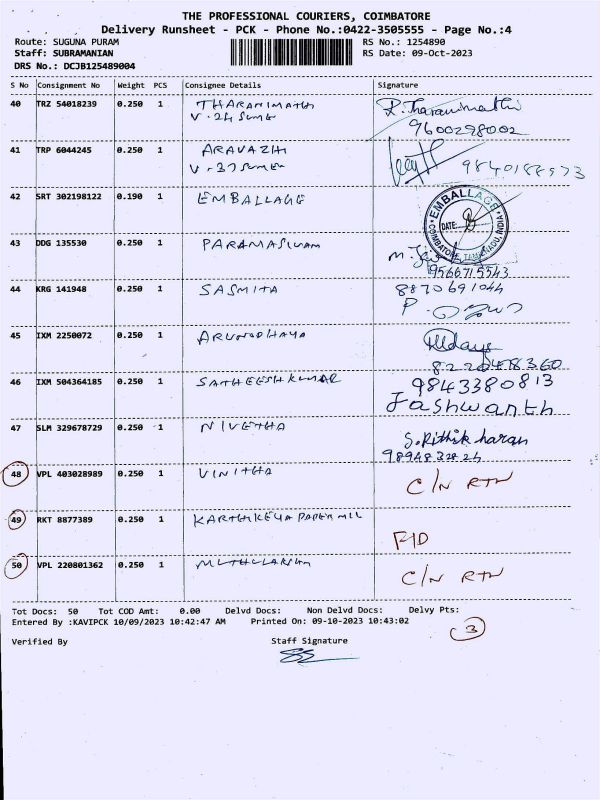 THE PROFESSIONAL COURIERS, COIMBATORE
Delivery Runsheet - PCK - Phone No.:0422-3505555 - Page No.:4
Route: SUGUNA PURAM RS No.: 1254890
Staff: SUBRAMANIAN RS Date: 09-Oct-2023
DRS No.: DCJB125489004
S No Consignment No Weight PCS Consignee Details Signature
40 TRZ 54018239 0.250 1 THARANIMATHI
V-24 9600298002
41 TRP 6044245 0.250 1 ARAVAZHI
V-37 9840188573
42 SRT 302198122 0.190 1 EMBALLAGE
EMBALLAGE
DATE:
COIMBATORE, TAMILNADU, INDIA
43 DDG 135530 0.250 1 PARAMASIVAM
9566715543
44 KRG 141948 0.250 1 SASMITA 8870691044
P.
45 IXM 2250072 0.250 1 ARUNODHAYA
Udaya
8220478360
46 IXM 504364185 0.250 1 SATHEESHKUMAR 9843380813
Jashwanth
47 SLM 329678729 0.250 1 NIVETHA
S.Rithik haran
48 VPL 403028989 0.250 1 VINITHA C/N RTN
49 RKT 8877389 0.250 1 KARTHIKEYA PAPER MILL
50 VPL 220801362 0.250 1 C/N RTN
Tot Docs: 50 Tot COD Amt: 0.00 Delvd Docs: Non Delvd Docs: Delvy Pts:
Entered By :KAVIPCK 10/09/2023 10:42:47 AM Printed On: 09-10-2023 10:43:02
3
Verified By Staff Signature